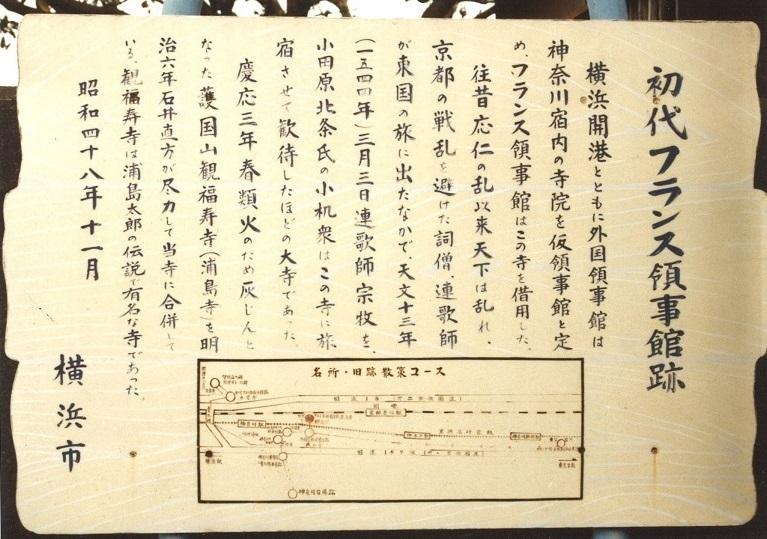 初代フランス領事館跡
横浜開港とともに外国領事館は
神奈川宿内の寺院を仮領事館と定
め、フランス領事館はこの寺を借用した。
往昔応仁の乱以来天下は乱れ、
京都の戦乱を避けた詞僧、連歌師
が東国の旅に出たなかで、天文十三年
(一五四四年)三月三日連歌師宗牧を、
小田原北条氏の小机衆はこの寺に旅
宿させて歓待したほどの大寺であった。
慶応三年春類火のため灰じんと
なった護国山観福寿寺(浦島寺)を明
治六年石井直方が尽力して当寺に合併して
いる。観福寿寺は浦島太郎の伝説で有名な寺であった。
昭和四十八年十一月
横浜市
名所・旧跡散策コース